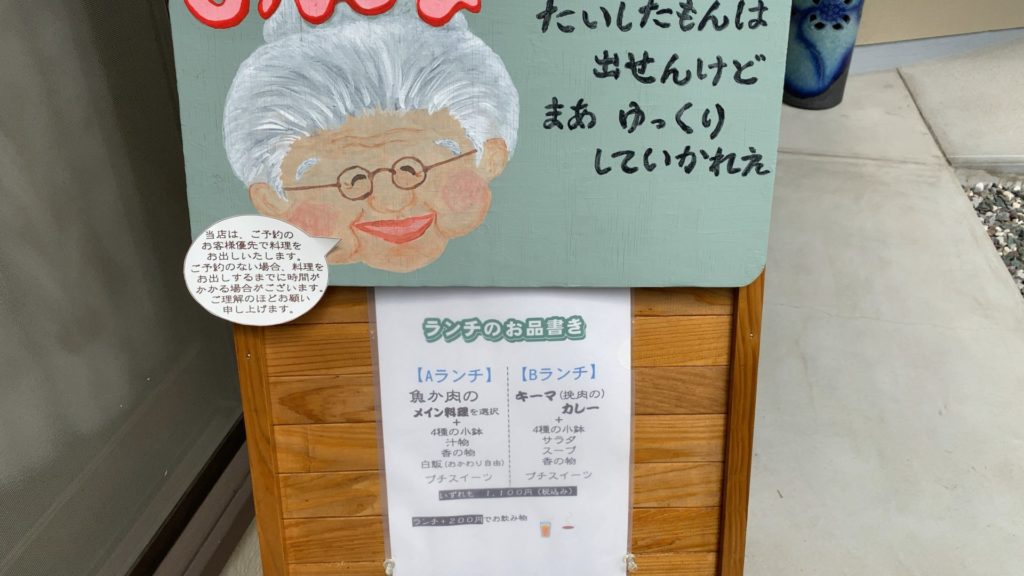 たいしたもんは
出せんけど
まあ ゆっくり
していかれえ
当店は、ご予約の
お客様優先で料理を
お出しいたします。
ご予約のない場合、料理を
お出しするまでに時間が
かかる場合がございます。
ご理解のほどお願い
申し上げます。
ランチのお品書き
【Aランチ】
魚か肉の
メイン料理を選択
+
4種の小鉢
汁物
香の物
白飯(おかわり自由)
プチスイーツ
【Bランチ】
キーマ(挽肉の)
カレー
+
4種の小鉢
サラダ
スープ
香の物
プチスイーツ
いずれも 1,100円(税込み)
ランチ+200円でお飲み物